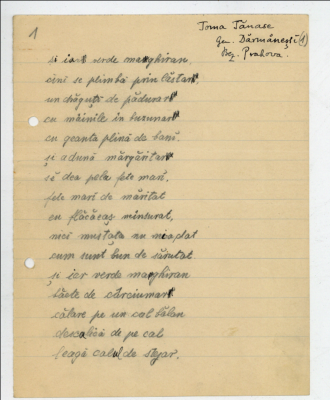 1
Toma Tănase
Gen. Dărmănești (1)
Reg. Prahova.
și iar verde maghiran,
cini se plimbă prin lăstari
un drăguț de pădurari
cu mâinile în buzunari
cu geanta plină de bani.
și adună mărgăritari
să dea pela fete mari,
fete mari de măritat
cu flăcăcaș minturat,
nici mustața nu
cum sunt bun de sărutat
și iar verde maghiran
băete de cârciumari
călare pe un cal bălan
descalică de pe cal
leagă calul de stejar.